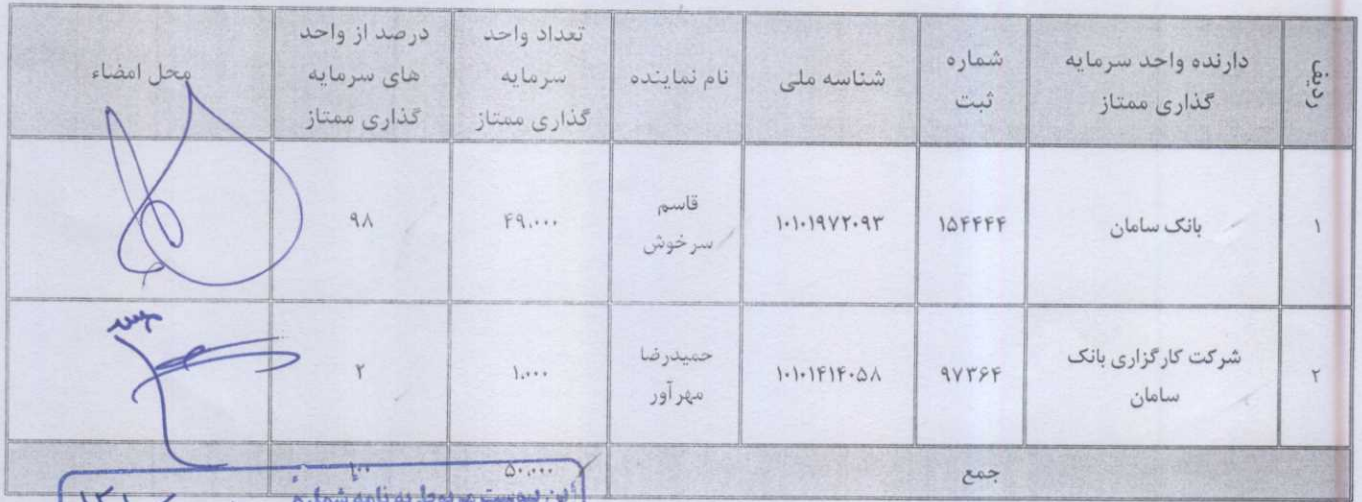 ردیف
دارنده واحد سرمایه
گذاری ممتاز
شماره
ثبت
شناسه ملی
نام نماینده
تعداد واحد
سرمایه
گذاری ممتاز
درصد از واحد
های سرمایه
گذاری ممتاز
محل امضاء
۱
بانک سامان
۱۵۴۴۴۴
۱۰۱۰۱۹۷۲۰۹۳
قاسم
سرخوش
۴۹،۰۰۰
۹۸
۲
شرکت کارگزاری بانک
سامان
۹۷۳۶۴
۱۰۱۰۱۴۱۴۰۵۸
حمیدرضا
مهرآور
۱،۰۰۰
۲
جمع
۵۰،۰۰۰
۱۰۰
این پیوست مربوط به نامه شماره